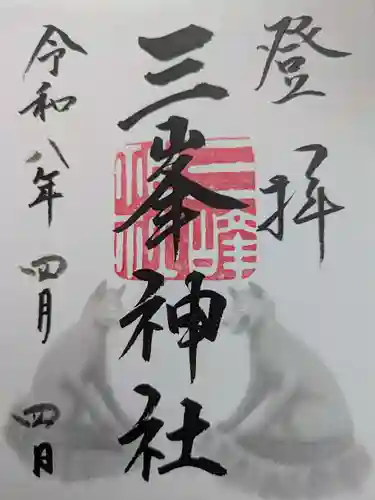 登拝
三峯神社
令和八年 四月 四日